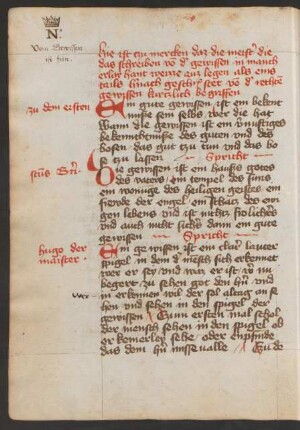 N.
Von
Hie ist czu mercken daz die meist die
das schreiben võ d gewissen in manch
erlay hant weyse zur legen als eins
tails hinach geschr stet võ d rechtn
gewissen kurczlich begriffen
zu dem ersten
Ein gute gewissen ist ein bekent
nuße sein selbs wer die hat
Wann die gewissen ist ein vnuftiges
bekenttnuße des guten vnd des
bosen das gut czu tun vnd das bo
se czu lassen Spricht
Die gewissen ist ein hauß gotes
des vaters ein tempel des suns
ein wonuge des heiligen geistes ein
freude der engel ein schacz des ewi
gen lebens vnd ist nichts frolichers
vnd auch nicht sichers dann ein gute
gewissen Spricht
hugo der
maister
Ein gewissen ist ein clar lauter
spigel in dem d mensch sich erkennet
wer er sey vnd waz er ist
begert zu sehen got den hñ vnd
Wer
in erkennen wil der sol allczeit an se
hen vnd sehen in den spigel der
gewissen Czum ersten mal schol
der mensch sehen in den spigel ob
er keinerley sehe oder enpfinde
das dem hñ misseualle Czu de